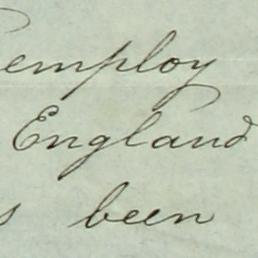 employ
England
been